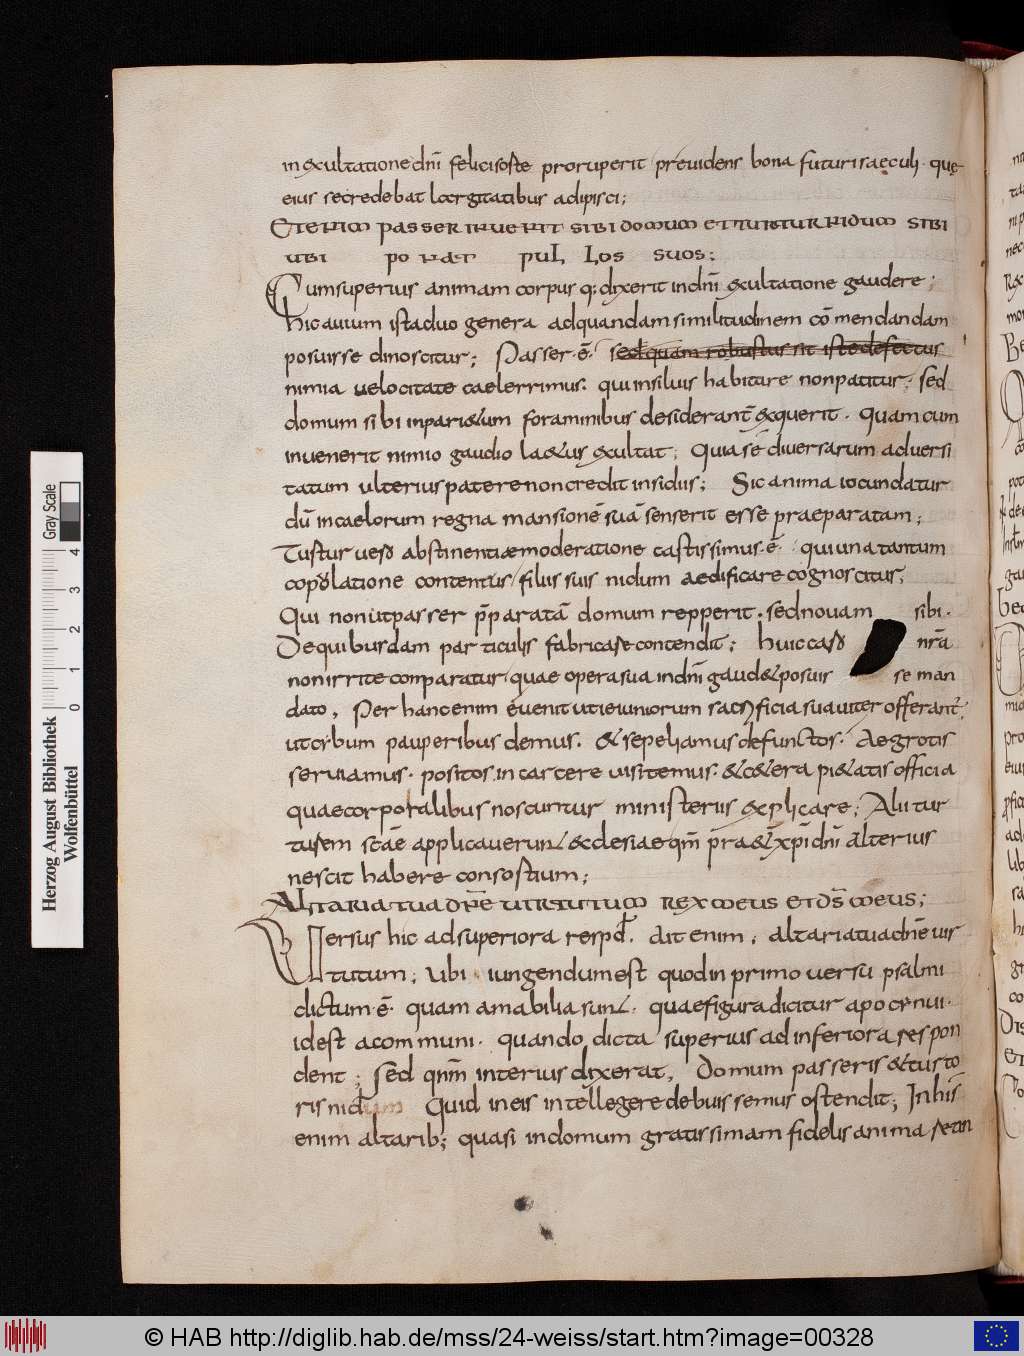 in exultatione dn̄i felicis oste proruperit previdens bona futuri saeculi · quę
eius se credebat largitatibus adipisci;
Etenim passer invenit sibi domum et turtur nidum sibi
ubi ponat pullos suos;
Cum superius animam corpus q; dixerit in dn̄i exultatione gaudere;
hic avium ista duo genera ad quandam similitudinem cōmendandam
posuisse dinoscitur; Passer · ē · sed quam robustus sit iste defectus
nimia velocitate caelerrimus · qui in silvis habitare non patitur · sed
domum sibi in parietum foraminibus desiderant̄ exquerit · Quam cum
invenerit nimio gaudio laetus exultat; Quia sē diversarum adversi
tatum ulterius patere non credit insidiis; Sic anima iocundatur
dū in caelorum regna mansionē suā senserit esse praeparatam;
Turtur vero abstinentiae moderatione castissimus · ē · qui una tantum
copulatione contentus filiis suis nidum aedificare cognoscitur,
Qui non ut passer p̄paratā domum repperit · sed novam sibi ·
De quibusdam particulis fabricare contendit; huic caro nr̄a
non irrite comparatur quae opera sua in dn̄i gaudet posuisse man
dato, Per hanc enim evenit ut ieiuniorum sacrificia suaviter offerant̄,
ut orbum pauperibus demus · et sepeliamus defunctos · Aegrotis
serviamus · positos in carcere visitemus · et cetera pietatis officia
quae corporalibus noscuntur ministeriis explicare; Alii tur
turem scāe applicaverunt ecclesiae qm̄ praeter xp̄i dn̄i alterius
nescit habere consortium;
Altaria tua dn̄e virtutum rex meus et ds̄ meus;
Versus hic ad superiora respd̄. Ait enim; altaria tua dn̄e vir
tutum; Ubi iungendum est quod in primo versu psalmi
dictum · ē · quam amabilia sunt · quae figura dicitur apo cenui ·
id est a communi · quando dicta superius ad inferiora respon
dent; Sed qn̄m interius dixerat, Domum passeris et turto
ris nidum Quid in eis intellegere debuissemus ostendit; In his
enim altarib; quasi in domum gratissimam fidelis anima se tan
Herzog August Bibliothek
Wolfenbüttel
0 1 2 3 4
Gray Scale
© HAB http://diglib.hab.de/mss/24-weiss/start.htm?image=00328